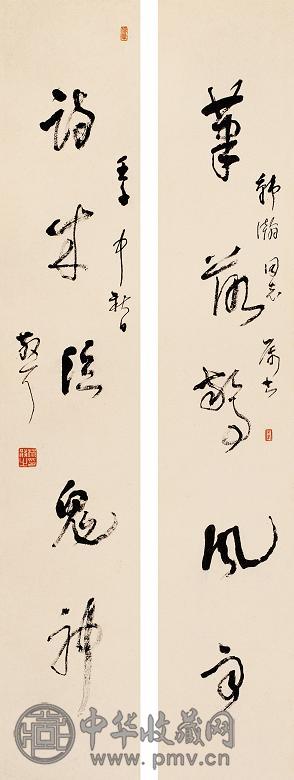 筆落驚風雨
韓瀚同志屬書
詩成泣鬼神
壬子中秋日
散耳
中华收藏网
www.pmv.cn